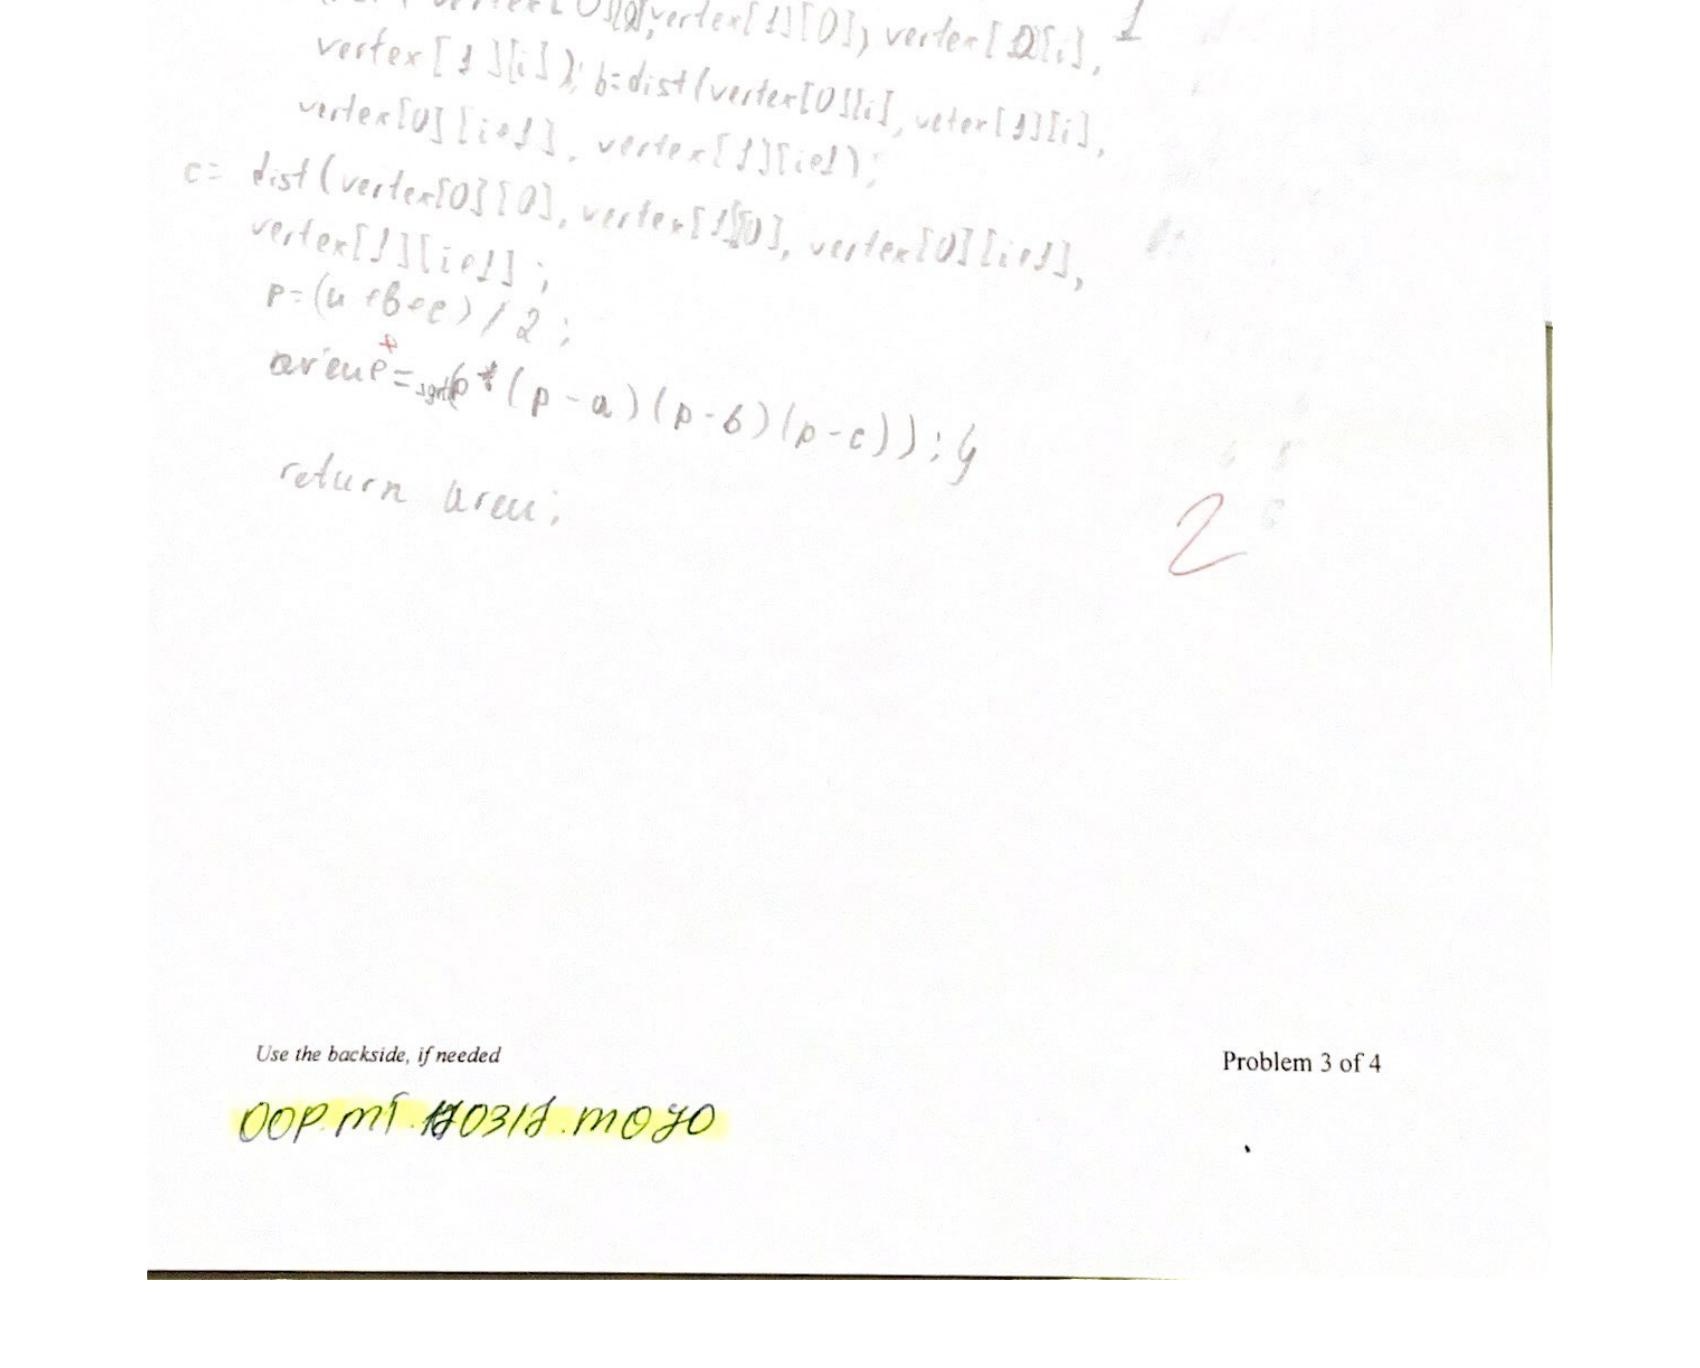 vertex[0][0], vertex[1][0]), vertex[0][i], 1
vertex[1][i]); b=dist(vertex[0][i], veter[1][i],
vertex[0][i+1], vertex[1][i+1);
c= dist(vertex[0][0], vertex[1][0], vertex[0][i+1],
vertex[1][i+1];
p=(a+b+c)/2;
area+=sqrt(p*(p-a)(p-b)(p-c));}
return area;
2
Use the backside, if needed
Problem 3 of 4